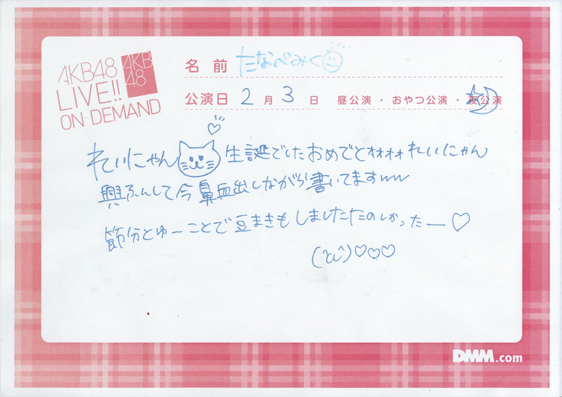 AKB48
LIVE!!
ON DEMAND
AKB
48
名前 たなべみく
公演日 2月3日 昼公演・おやつ公演・夜公演
れいにゃん 生誕でしたおめでとオオオオれいにゃん
興ふんして今鼻血出しながら書いてますww
節分とゆーことで豆まきもしましたたのしかったー♡
♡♡♡
DMM.com